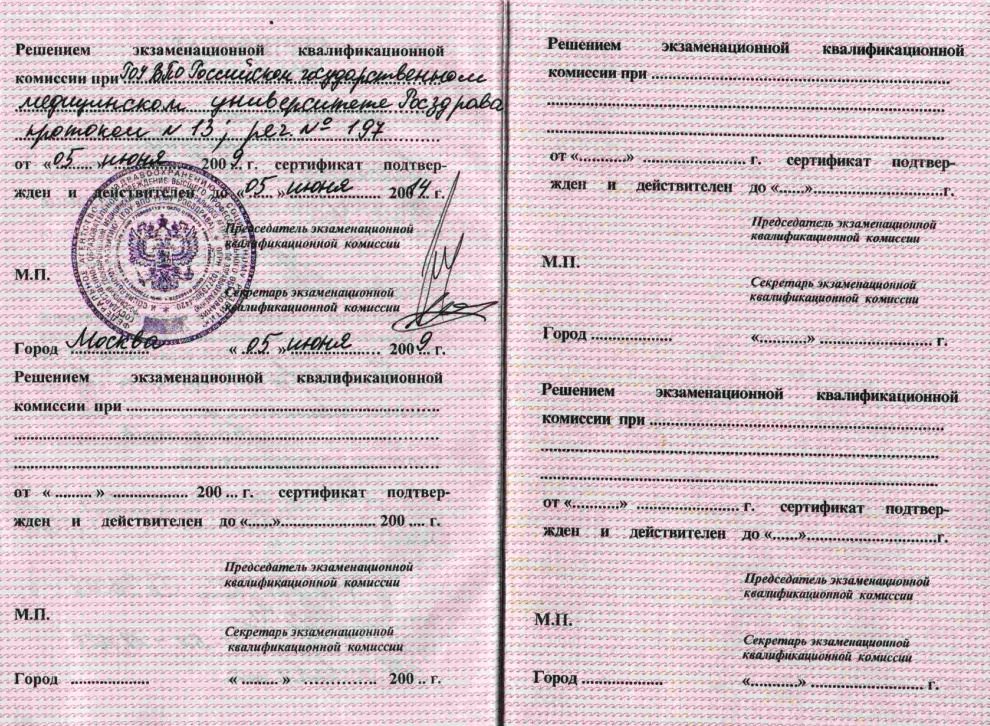 Решением экзаменационной квалификационной
комиссии при ГОУ ВПО Российском государственном
медицинском университете Росздрава
протокол N 13, рег. № 197
от «05» июня 2009 г. сертификат подтвер-
жден и действителен до «05» июня 2014 г.
Председатель экзаменационной
квалификационной комиссии
М.П.
Секретарь экзаменационной
квалификационной комиссии
Город Москва «05» июня 2009 г.
Решением экзаменационной квалификационной
комиссии при ........................
от «.........» .................. 200 ... г. сертификат подтвер-
жден и действителен до «......»....................... 200 .... г.
Председатель экзаменационной
квалификационной комиссии
М.П.
Секретарь экзаменационной
квалификационной комиссии
Город ................... «........» .................. 200 .. г.
Решением экзаменационной квалификационной
комиссии при ........................
от «...........» ......................... г. сертификат подтвер-
жден и действителен до «......»................................г.
Председатель экзаменационной
квалификационной комиссии
М.П.
Секретарь экзаменационной
квалификационной комиссии
Город .................... «...........» ............................ г.
Решением экзаменационной квалификационной
комиссии при ........................
от «...........» ......................... г. сертификат подтвер-
жден и действителен до «......»................................г.
Председатель экзаменационной
квалификационной комиссии
М.П.
Секретарь экзаменационной
квалификационной комиссии
Город .................... «...........» ............................ г.